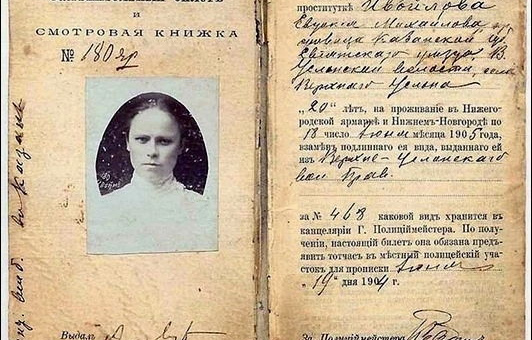 И
СМОТРОВАЯ КНИЖКА
№ 180 яр
Выдалъ
проституткѣ Ивойлова
Евдокія Михайлова
Казанской
Свіяжскаго уѣзда, В.
Услонской волости, села
Верхняго Услона
„20“ лѣтъ, на проживаніе въ Нижего-
родской ярмаркѣ и Нижнемъ-Новгородѣ по
18 число Іюня мѣсяца 1905 года,
взамѣнъ подлиннаго ея вида, выданнаго ей
изъ Верхне-Услонскаго
вол. Прав.
за № 468 каковой видъ хранится въ
канцеляріи Г. Полиціймейстера. По полу-
ченіи, настоящій билетъ она обязана предъ-
явить тотчасъ въ мѣстный полицейскій уча-
стокъ для прописки Іюня
„19“ дня 1904 г.
За Полиціймейстера